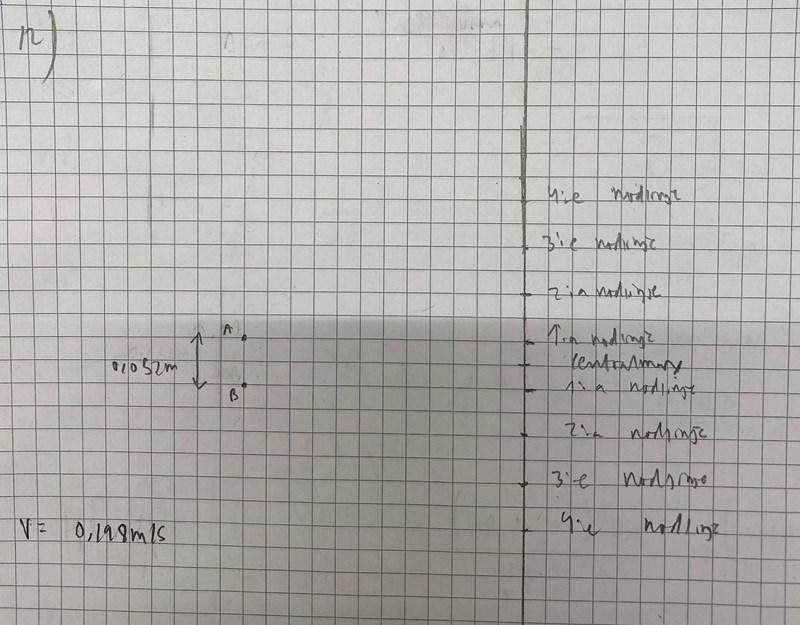 12)
4:e nodlinje
3:e nodlinje
2:a nodlinje
A
1:a nodlinje
centralmax
0,052m
1:a nodlinje
B
2:a nodlinje
3:e nodlinje
4:e nodlinje
V= 0,198m/s